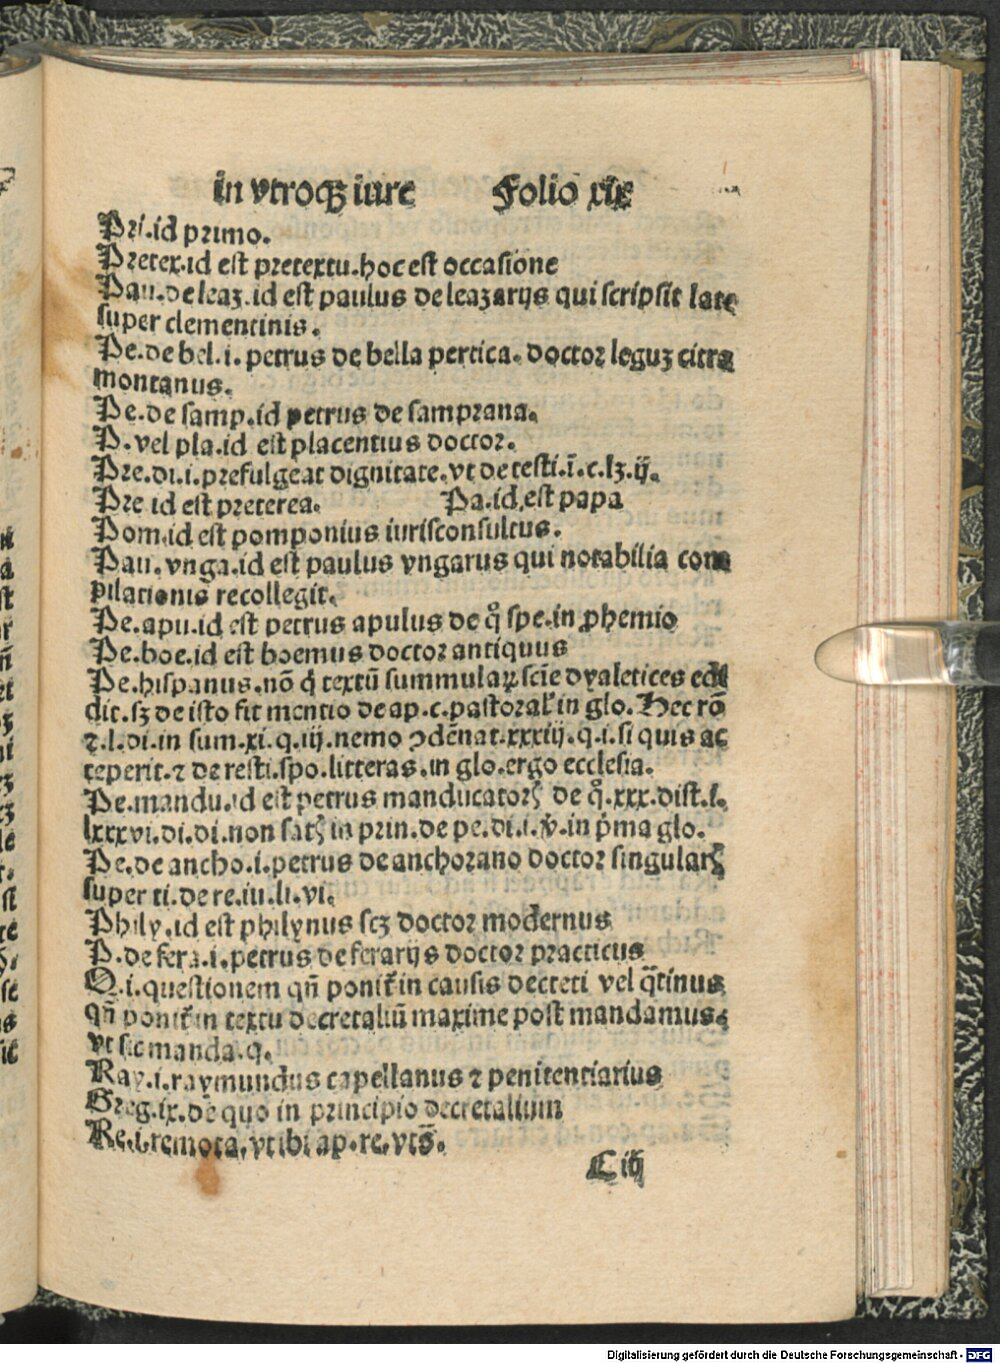 in vtroqꝫ iure Folio xix
Pri.id primo.
Pretex.id est pretextu.hoc est occasione
Pau.de leaꝫ.id est paulus de leazarijs qui scripsit late
super clementinis.
Pe.de bel.i. petrus de bella pertica. doctor leguꝫ citra
montanus.
Pe.de samp.id petrus de samprana.
P.vel pla.id est placentius doctor.
Pre.di.i.prefulgeat dignitate.vt de testi.ī.c.lꝫ.ij.
Pre id est preterea. Pa.id.est papa
Pom.id est pomponius iurisconsultus.
Pau.vnga.id est paulus vngarus qui notabilia com
pilationis recollegit.
Pe.apu.id est petrus apulus de q̊ spe.in ꝓhemio
Pe.boe.id est boemus doctor antiquus
Pe.hispanus.nō q̇ textū summulaꝝ sciē dyaletices edi
dit.sꝫ de isto fit mentio de ap.c.pastoral' in glo. Hec rō
⁊.l.di.in sum.xi.q.iij.nemo ↄdēnat.xxxiij.q.i.si quis ac
ceperit.⁊ de resti.spo.litteras.in glo.ergo ecclesia.
Pe.mandu.id est petrus manducatorꝭ de q̊.xxx.dist.l.
lxxxvi.di.di.non satꝭ in prin.de pe.di.i.v̇.in p̄ma glo.
Pe.de ancho.i.petrus de anchorano doctor singularꝭ
super ti.de re.iu.li.vi.
Phily.id est philynus scꝫ doctor modernus
P.de fera.i.petrus de ferarijs doctor practicus
Q.i.questionem qñ ponit̄ in causis decreti vel q̄tinus
qñ ponit̄ in textu decretaliū maxime post mandamus.
vt sic manda.q.
Ray.i.raymundus capellanus ⁊ penitentiarius
Greg.ix.de quo in principio decretalium
Re.i.remota.vt ibi ap.re.vts̄.
C iij
Digitalisierung gefördert durch die Deutsche Forschungsgemeinschaft - DFG